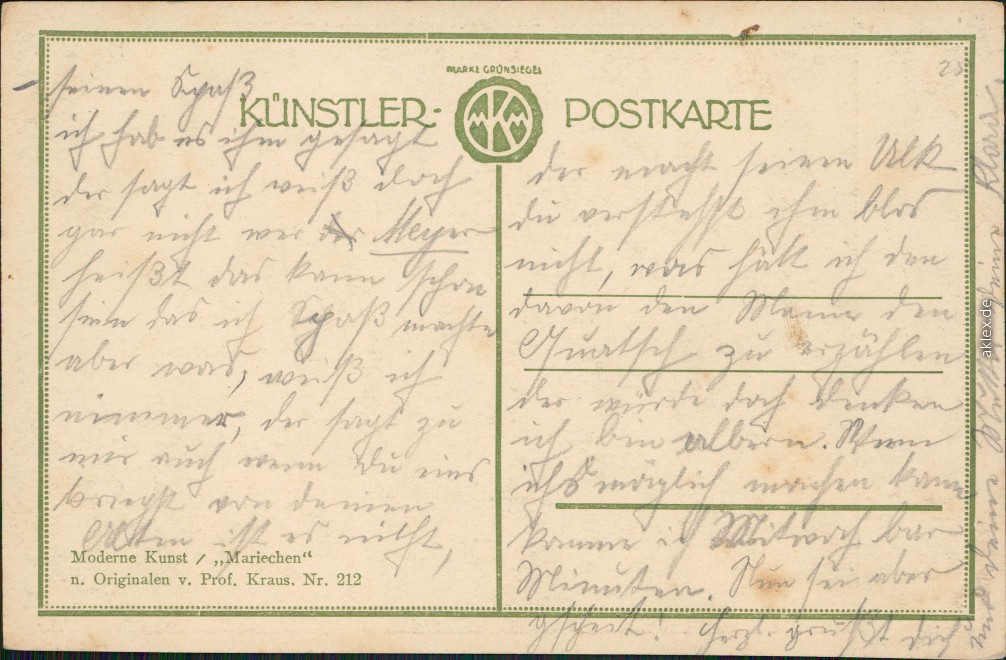 MARKE GRÜNSIEGEL
KÜNSTLER-
MKM
POSTKARTE
seinen Spaß
ich hab es ihm gesagt
der sagt ich weiß doch
gar nicht wer Meyer
heißt das kann schon
sein das ich Spaß machte
aber was, weiß ich
nimmer, der sagt zu
mir auch wenn du uns
kriegst von deinen
alten ist es nicht,
Moderne Kunst / „Mariechen“
n. Originalen v. Prof. Kraus. Nr. 212
der macht seinen Ulk
du verstehst ihn blos
nicht, was hätt ich den
davon den Mann den
Quatsch zu erzählen
der würde doch denken
ich bin albern. Wenn
ichs möglich machen kann
komme ich Mittwoch par
Minuten. Nun sei aber
gscheit! Herzl. grüßt dich
aklex.de